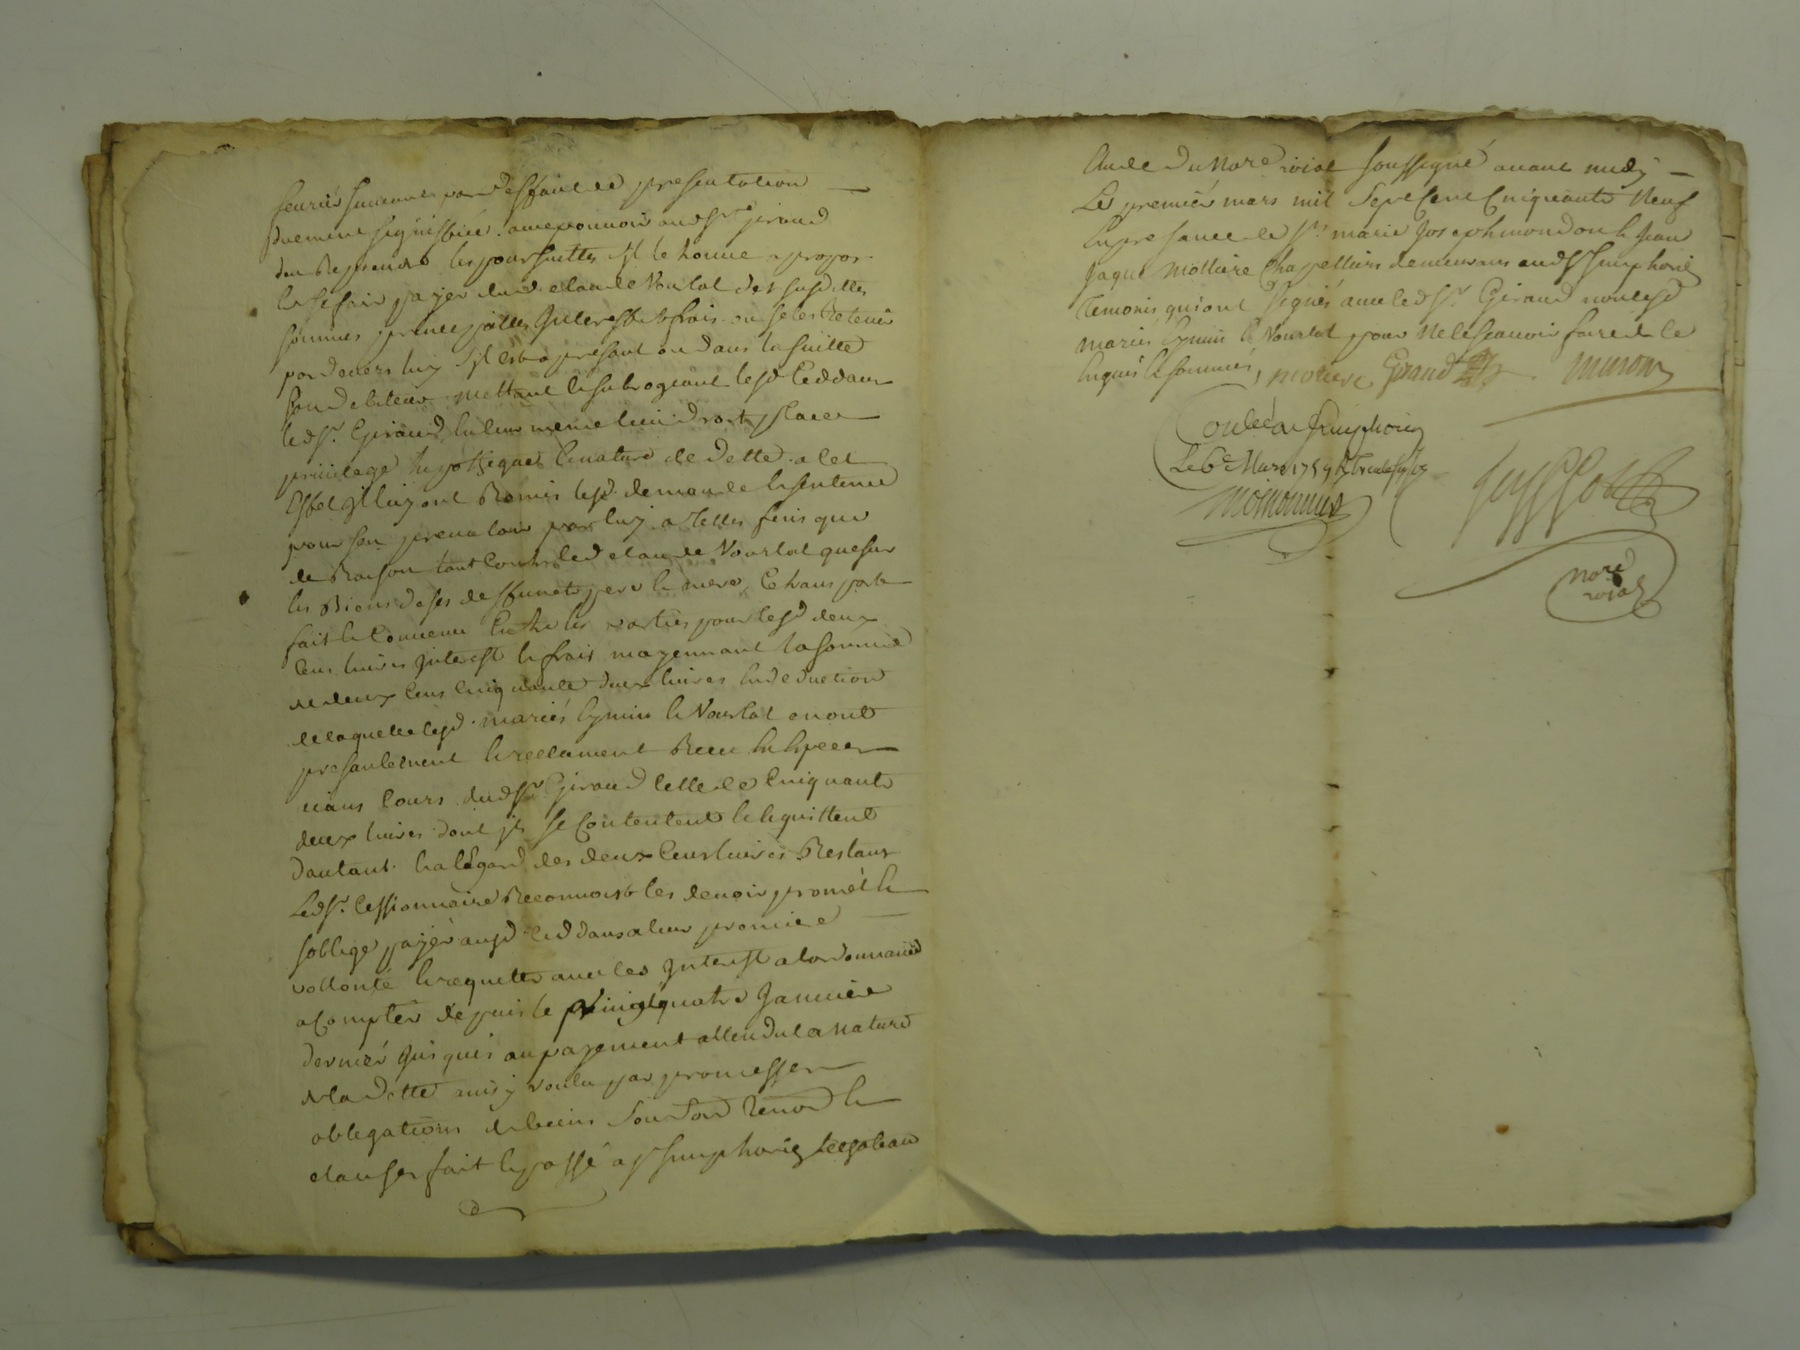 feurier suivant par deffaut de presentation
duement signiffiée avec pouvoir audsr giraud
den Reprendre les poursuittes sil le trouve apropos
se faire payer dud claude Nourlat des susdittes
sommes principalles Interest & frais ou se les Retenir
pardevers luy sil est apresant ou dans la suitte
son debiteur mettant & subrogeant lesd Ceddans
ledsr. Giraud en leur meme lieu droit place
privilege hypotheque & nature de dette a cet
Effet Ils luy ont Remis lesd. demande & sentence
pour sen prevaloir par luy a telles fins que
de Raison tant contre led claude Nourlat que sur
les Biens de ses deffunets pere & mere, Ce transport
fait & convenu Entre les parties pour lesd deux
Cens livres Interest & frais moyennant la somme
de deux cens cinquante deux livres En deduction
de laquelle lesd. mariés Eymin & Nourlat en ont
presantement & reelament Receu En Especes
aians cours dudsr Giraud celle de Cinquante
deux livres dont ils se Contentent & quittent
dautant. & a l'Egard des deux Cens livres Restans
Ledsr. Cessionnaire Reconnoist les devoir promet &
soblige payer ausd Ceddans a leur premiere
vollonté & requette avec les Interest a lordonnance
a Compter depuis le vingtquatre Janvier
dernier Jusques au payement attendu la nature
de la dette ainsy voulu par promesses
obligations de biens Soumond Renond &
clauses fait & passé a st Simphorien
du Nore roial soussigné avant midy
Le premier mars mil Sept Cent Cinquante Neuf
En presance de sr. marie Joseph mondon & Jean
Jaque Mottiere Chapelliers demeurans aud st Simphorien
Temoins qui ont signés avec ledsr. Giraud non lesd
mariés Eymin & Nourlat pour ne le scavoir faire de ce
Enquis & sommés, moliere Giraud
Controlé a st Simphorien
Le 6e Mars 1759
Nore
roial